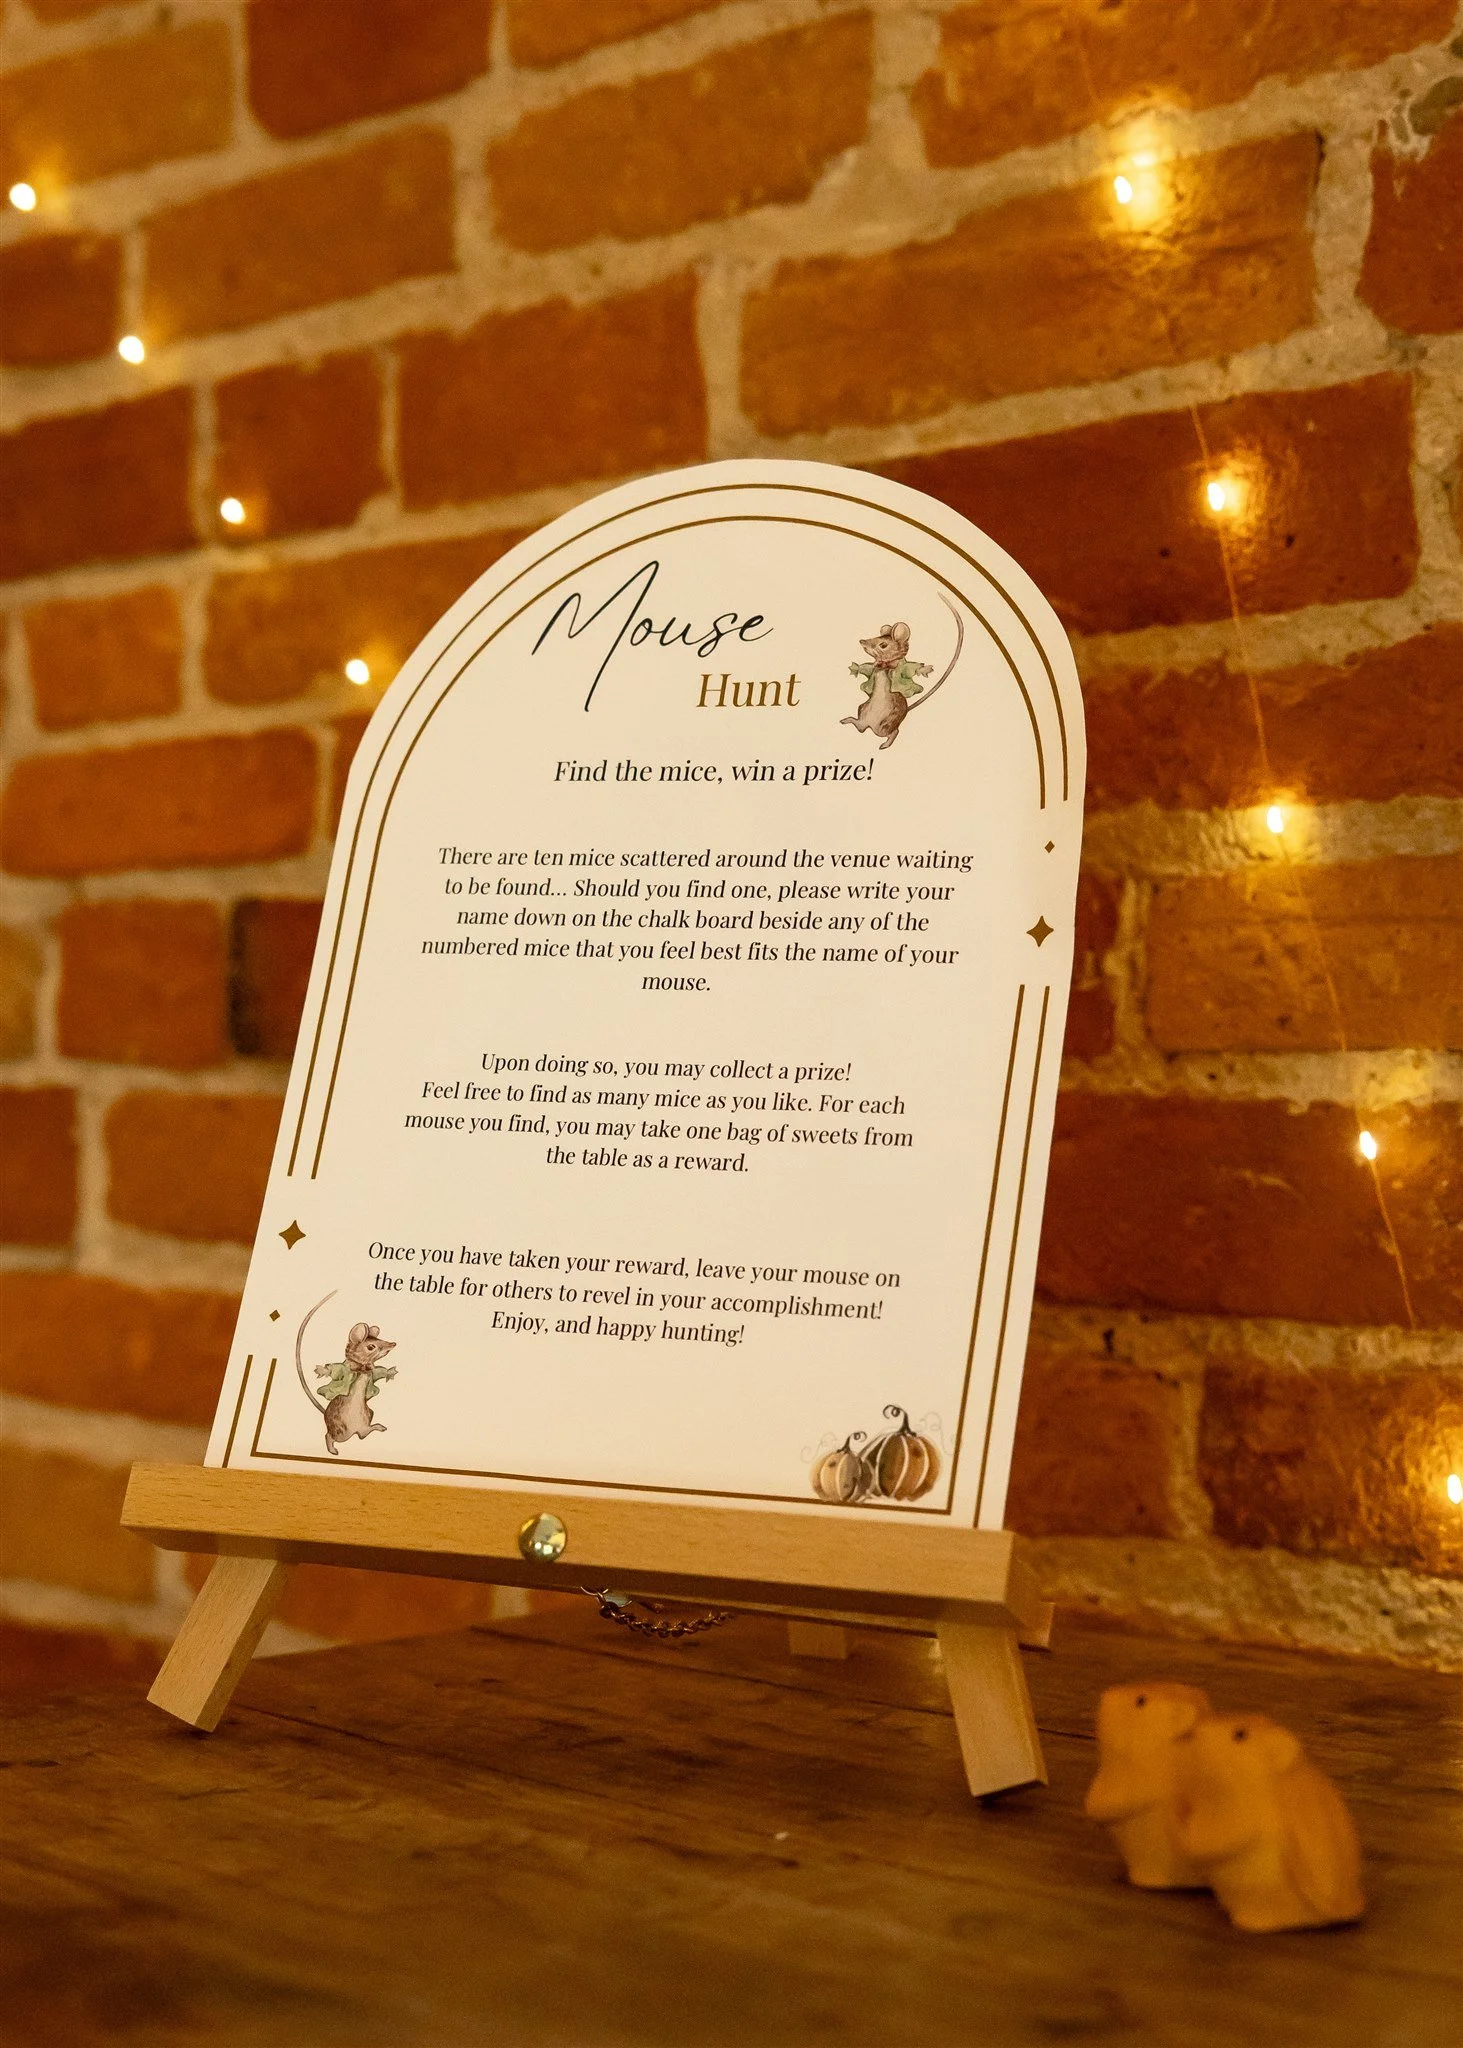 Mouse
Hunt
Find the mice, win a prize!
There are ten mice scattered around the venue waiting
to be found... Should you find one, please write your
name down on the chalk board beside any of the
numbered mice that you feel best fits the name of your
mouse.
Upon doing so, you may collect a prize!
Feel free to find as many mice as you like. For each
mouse you find, you may take one bag of sweets from
the table as a reward.
Once you have taken your reward, leave your mouse on
the table for others to revel in your accomplishment!
Enjoy, and happy hunting!